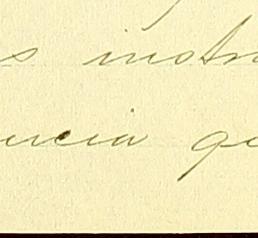 s instr
uncia qu